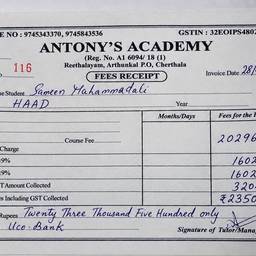 NE NO : 9745343370, 9745843536 GSTIN : 32EOIPS4802
ANTONY'S ACADEMY
(Reg. No. A1 6094/ 18 (1)
Reethalayam, Arthunkal P.O, Cherthala
116 FEES RECEIPT Invoice Date 28/
e Student Sameen Muhammadali
HAAD Year
Months/Days Fees for the
Course Fee 20296
Charge
9% 1602
9% 1602
T Amount Collected 320
s Including GST Collected ₹2350
Rupees Twenty Three Thousand Five Hundred only
Uco-Bank Signature of Tutor/Mana